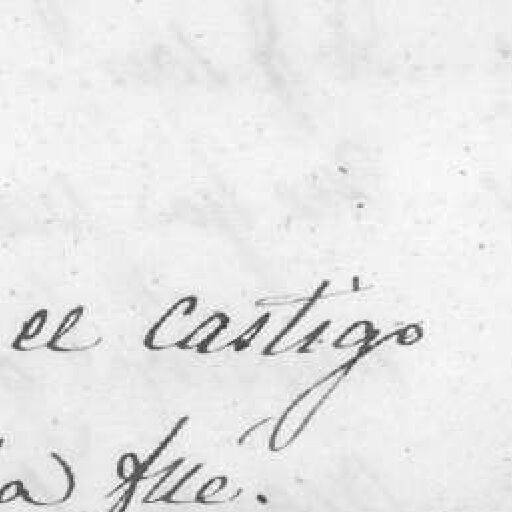 el castigo
a fué.